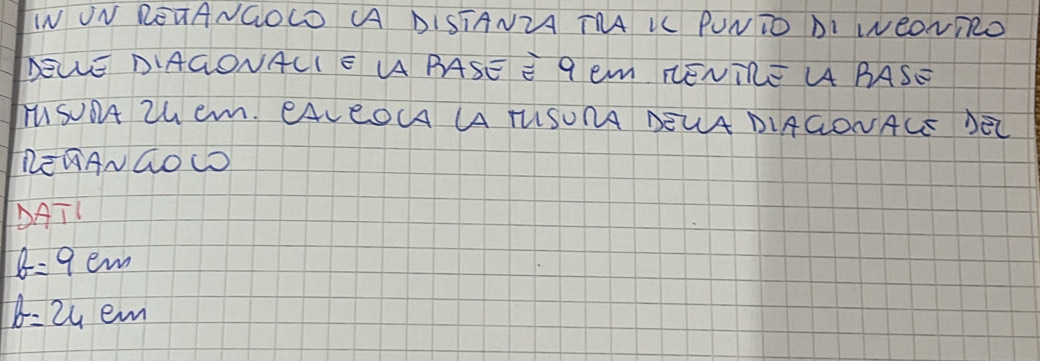 IN UN RETTANGOLO LA DISTANZA TRA IL PUNTO DI INCONTRO
DELLE DIAGONALI E LA BASE È 9 cm MENTRE LA BASE
MISURA 24 cm. CALCOLA LA MISURA DELLA DIAGONALE DEL
RETTANGOLO
DATI
b= 9 cm
b= 24 cm